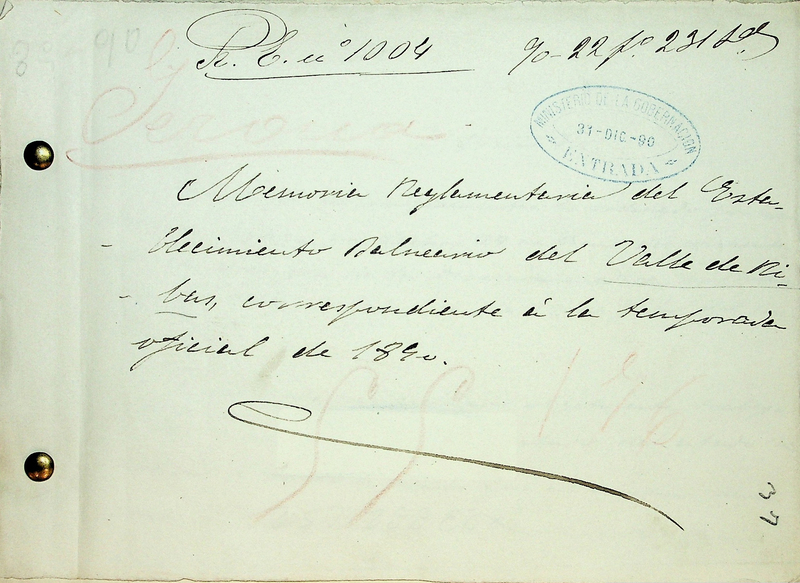 R. E. nº 1004
90-22 fº 231
MINISTERIO DE LA GOBERNACIÓN
31-DIC-90
ENTRADA
Gerona
Memoria Reglamentaria del Esta-
blecimiento Balneario del Valle de Ri-
bas, correspondiente á la temporada
oficial de 1890.